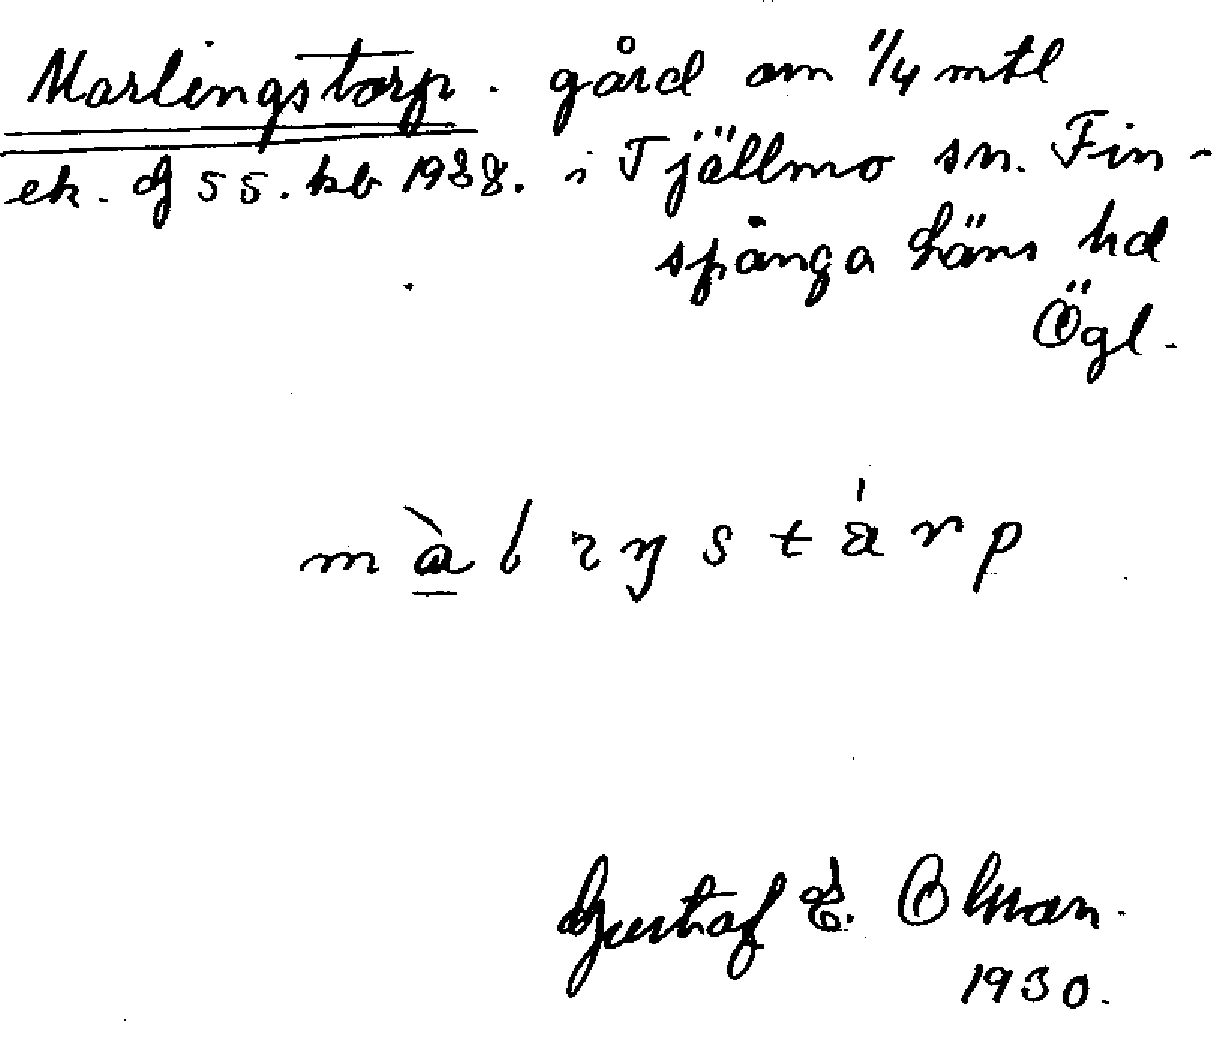 Marlingstorp. gård om 1/4 mtl
ek. dj 55. kb 1938. i Tjällmo sn. Fin-
spånga läns hd
Ögl.
màlrystárp
Gustaf E. Olsson.
1930.